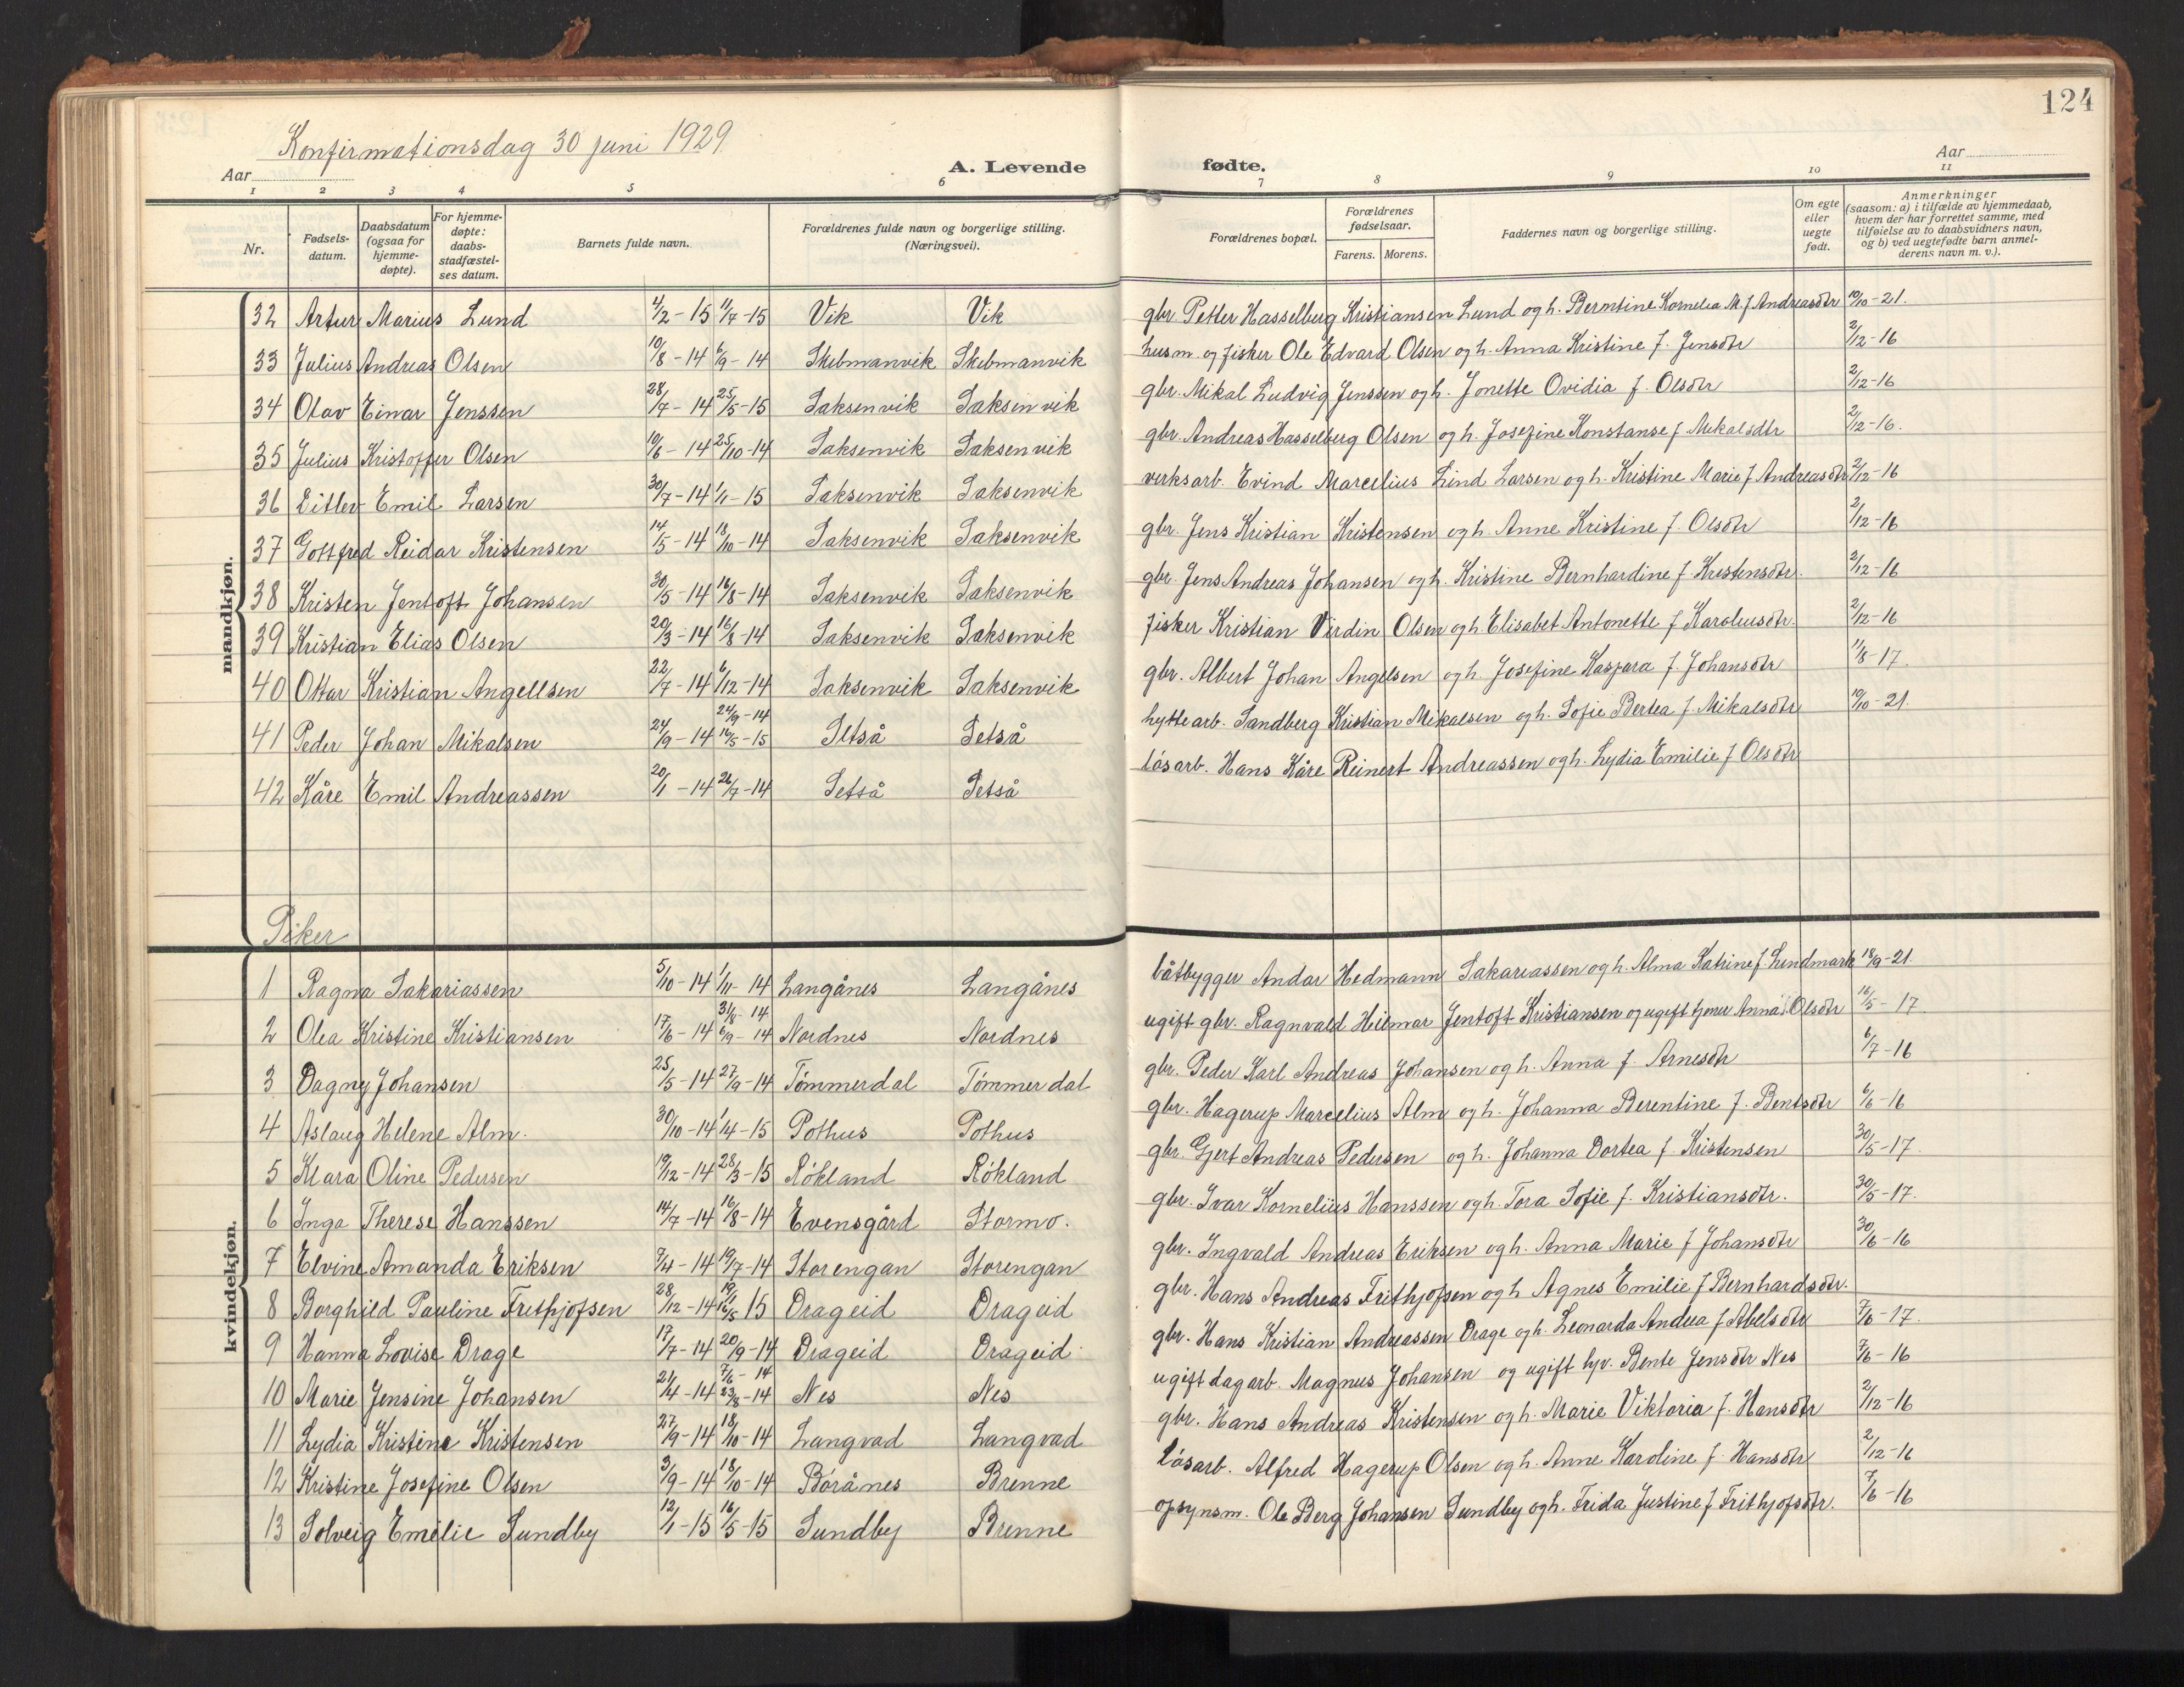 124
Konfirmationsdag 30 juni 1929
Aar
A. Levende
fødte.
Aar
1 2 3 4 5 6 7 8 9 10 11
Nr.
Fødsels-
datum.
Daabsdatum
(ogsaa for
hjemme-
døpte).
For hjemme-
døpte:
daabs-
stadfæstel-
ses datum.
Barnets fulde navn.
Forældrenes fulde navn og borgerlige stilling.
(Næringsvei).
Forældrenes bopæl.
Forældrenes
fødselsaar.
Farens. Morens.
Faddernes navn og borgerlige stilling.
Om egte
eller
uegte
født.
Anmerkninger
(saasom: a) i tilfælde av hjemmedaab,
hvem der har forrettet samme, med
tilføielse av to daabsvidners navn,
og b) ved uegtefødte barn anmel-
derens navn m. v.).
mandkjøn.
32 Artur Marius Lund 4/2-15 11/7-15 Vik Vik gbr. Petter Hasselberg Kristiansen Lund og h. Berntine Kornelia M. f. Andreasdtr 10/10-21.
33 Julius Andreas Olsen 10/8-14 6/9-14 Skebmanvik Skebmanvik husm. og fisker Ole Edvard Olsen og h. Anna Kristine f. Jensdtr 2/12-16
34 Olav Einar Jenssen 28/7-14 25/5-15 Saksenvik Saksenvik gbr. Mikal Ludvig Jenssen og h. Jonette Ovidia f. Olsdtr 2/12-16
35 Julius Kristoffer Olsen 10/6-14 25/10-14 Saksenvik Saksenvik gbr. Andreas Hasselberg Olsen og h. Josefine Konstanse f. Mikalsdtr 2/12-16.
36 Eitlev Emil Larsen 30/7-14 1/1-15 Saksenvik Saksenvik verksarb. Evind Marcelius Lind Larsen og h. Kristine Marie f. Andreasdtr 2/12-16
37 Gottfred Reidar Kristensen 14/5-14 18/10-14 Saksenvik Saksenvik gbr. Jens Kristian Kristensen og h. Anne Kristine f. Olsdtr 2/12-16
38 Kristen Jentoft Johansen 30/5-14 16/8-14 Saksenvik Saksenvik gbr. Jens Andreas Johansen og h. Kristine Bernhardine f. Kristensdtr. 2/12-16
39 Kristian Elias Olsen 20/3-14 16/8-14 Saksenvik Saksenvik fisker Kristian Virdin Olsen og h. Elisabet Antonette f. Karoliusdtr. 2/12-16
40 Ottar Kristian Angellsen 22/7-14 6/12-14 Saksenvik Saksenvik gbr. Albert Johan Angelsen og h. Josefine Kaspara f. Johansdtr 11/8-17.
41 Peder Johan Mikalsen 24/9-14 24/9-14 16/5-15 Setså Setså hyttearb. Sandberg Kristian Mikalsen og h. Sofie Bertea f. Mikalsdtr 10/10-21.
42 Kåre Emil Andreassen 20/1-14 26/7-14 Setså Setså løsarb. Hans Kåre Reinert Andreassen og h. Lydia Emilie f. Olsdtr
Piker
kvindekjøn.
1 Ragna Sakariassen 5/10-14 1/11-14 Langånes Langånes båtbygger Andor Hedmann Sakariassen og h. Alma Katrine f. Lundmark 18/9-21.
2 Olea Kristine Kristiansen 17/6-14 31/8-14 6/9-14 Nordnes Nordnes ugift gbr. Ragnvald Hilmar Jentoft Kristiansen og ugift tjener Anna Olsdtr 16/5-17
3 Dagny Johansen 25/5-14 27/9-14 Tømmerdal Tømmerdal gbr. Peder Karl Andreas Johansen og h. Anna f. Arnesdtr 6/7-16
4 Aslaug Helene Alm. 30/10-14 1/4-15 Pothus Pothus gbr. Hagerup Marcelius Alm og h. Johanna Berentine f. Bentsdtr 6/6-16
5 Klara Oline Pedersen 19/12-14 28/3-15 Røkland Røkland gbr. Gjert Andreas Pedersen og h. Johanna Dortea f. Kristensen 30/5-17.
6 Inga Therese Hanssen 14/7-14 16/8-14 Evensgård Stormo. gbr. Ivar Kornelius Hanssen og h. Tora Sofie f. Kristiansdtr. 30/5-17.
7 Elvine Amanda Eriksen 7/4-14 19/7-14 Storengan Storengan gbr. Ingvald Andreas Eriksen og h. Anna Marie f. Johansdtr 30/6-16
8 Borghild Pauline Frithjofsen 28/12-14 19/1 16/5 15 Drageid Drageid gbr. Hans Andreas Frithjofsen og h Agnes Emilie f. Bernhardsdtr.
9 Hanna Lovise Drage 17/7-14 20/9-14 Drageid Drageid gbr. Hans Kristian Andreassen Drage og h. Leonarda Andrea f. Abelsdtr 7/6-17.
10 Marie Jensine Johansen 21/4-14 7/6-14 23/8-14 Nes Nes ugift dagarb. Magnus Johansen og ugift hjv. Bente Jensdtr Nes 7/6-16
11 Lydia Kristine Kristensen 27/9-14 18/10-14 Langvad Langvad gbr. Hans Andreas Kristensen og h. Marie Viktoria f. Hansdtr 2/12-16
12 Kristine Josefine Olsen 3/9-14 18/10-14 Borånes Brenne løsarb. Alfred Hagerup Olsen og h. Anne Karoline f. Hansdtr 2/12-16
13 Solveig Emelie Sundby 12/1-15 16/5-15 Sundby Brenne opsynsm. Ole Berg Johansen Sundby og h. Frida Justine f. Frithjofsdtr. 7/6-16